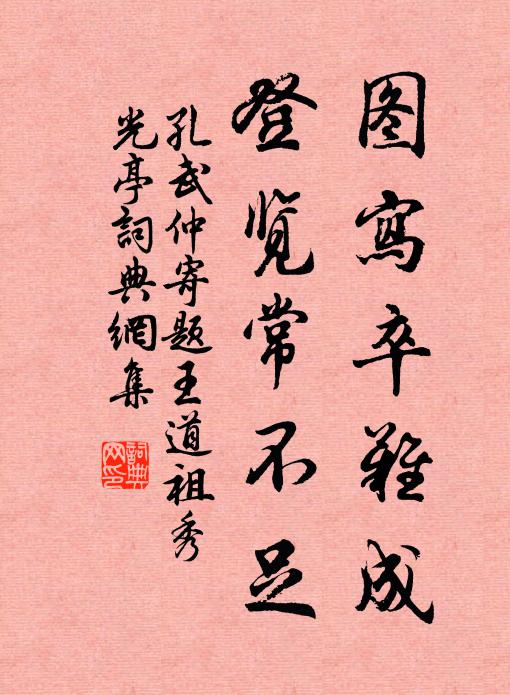 图寫卒難成
登览常不足
孔武仲寄题王道祖秀
光亭詞典網集
詞典
网印